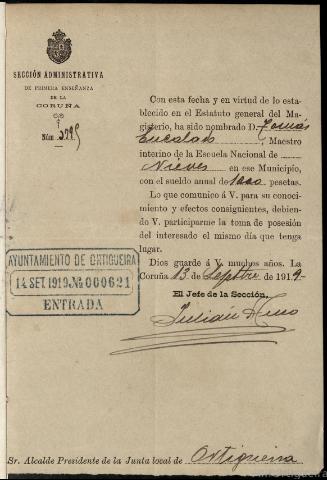 SECCIÓN ADMINISTRATIVA
DE PRIMERA ENSEÑANZA
DE LA
CORUÑA
Núm.
Con esta fecha y en virtud de lo esta-
blecido en el Estatuto general del Ma-
gisterio, ha sido nombrado D. Tomás
Maestro
interino de la Escuela Nacional de
Nieves en ese Municipio,
con el sueldo anual de 1000 pesetas.
Lo que comunico á V. para su cono-
cimiento y efectos consiguientes, debien-
do V. participarme la toma de posesión
del interesado el mismo día que tenga
lugar.
Dios guarde á V. muchos años. La
Coruña 13 de Sepbre de 1919-
El Jefe de la Sección,
Julián
AYUNTAMIENTO DE ORTIGUEIRA
14 SET. 1919 № 000621
ENTRADA
Sr. Alcalde Presidente de la Junta local de Ortigueira